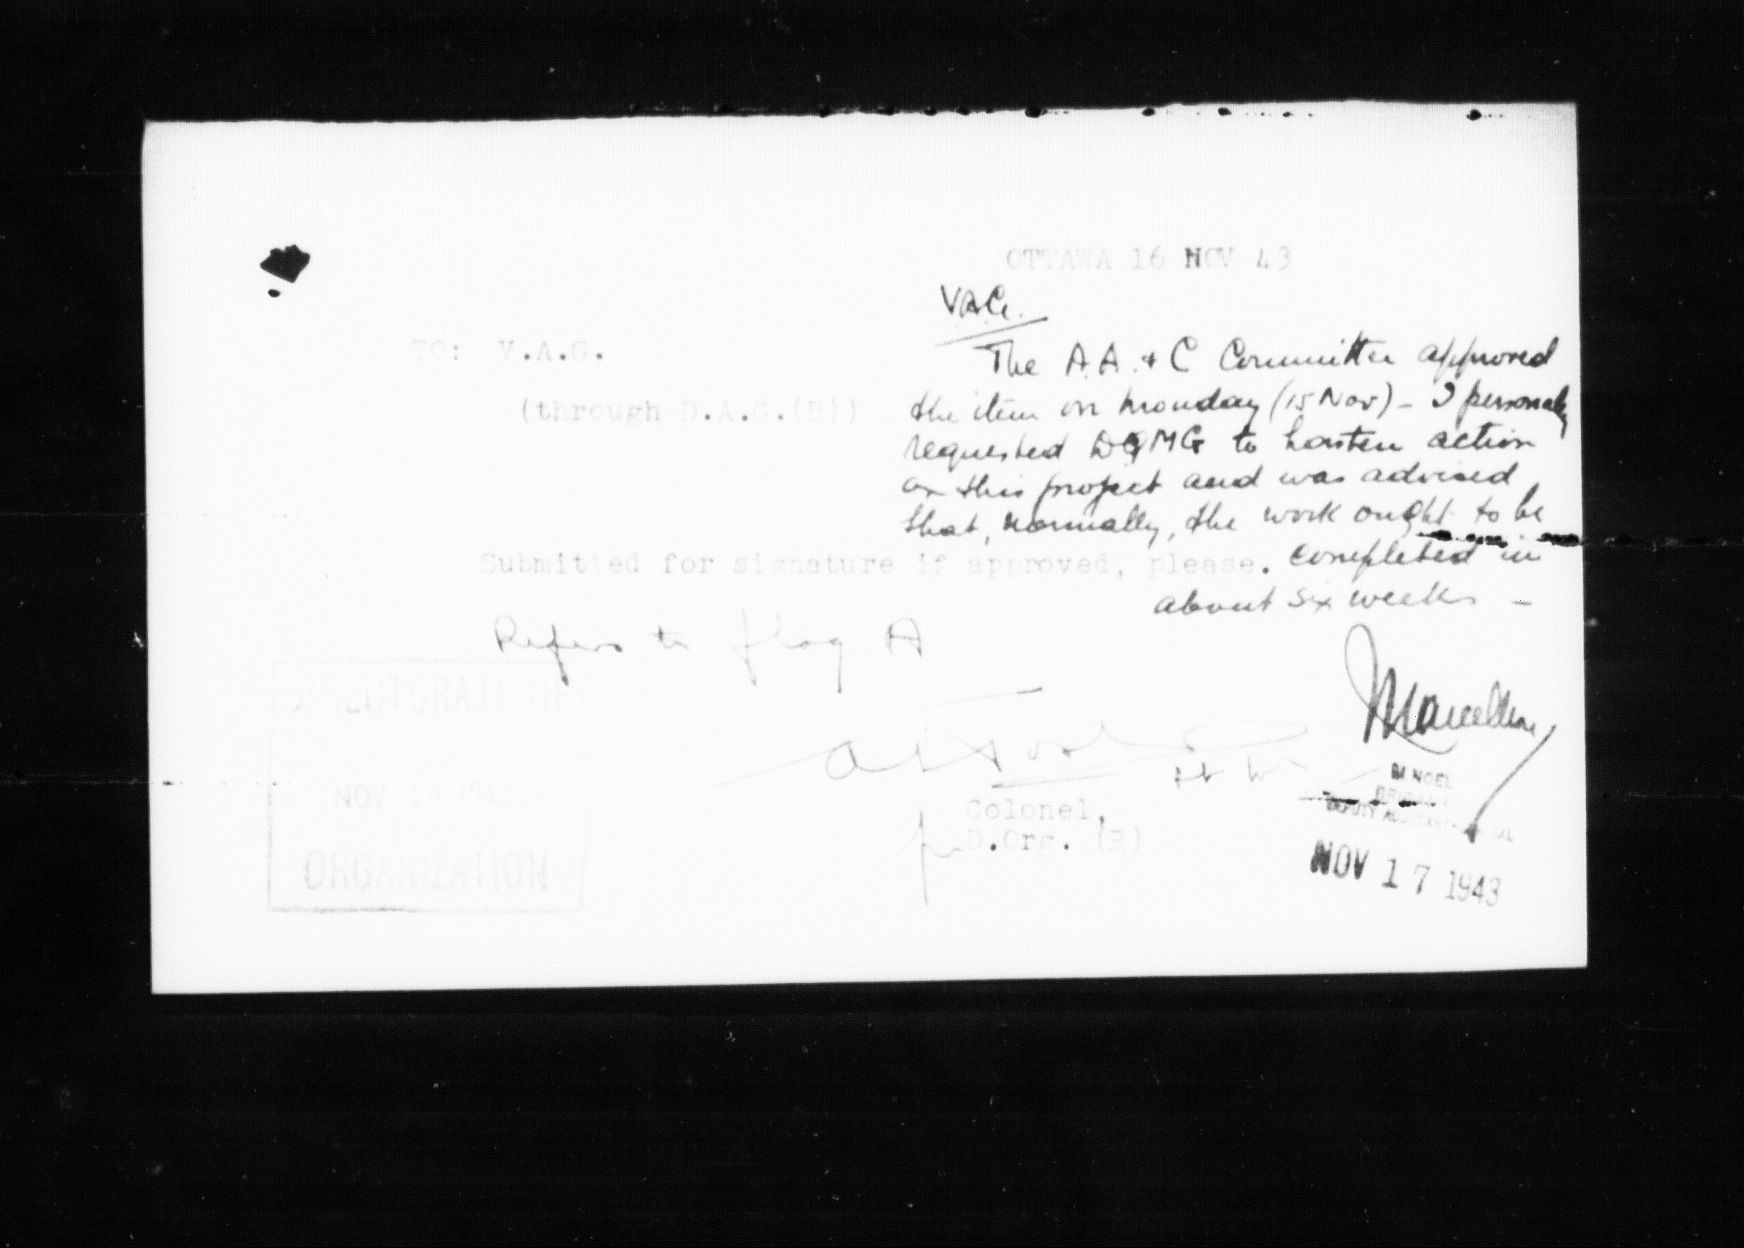 OTTAWA 16 NOV 43
V.A.G.
TO: V.A.G.
(through D.A.G.(B))
The A.A. & C Committee approved
the item on Monday (15 Nov) - I personally
requested DQMG to hasten action
on this project and was advised
that, normally, the work ought to be
completed in
about six weeks -
Submitted for signature if approved, please.
Refers to flag A
Colonel,
for D.Org. (R)
DIRECTORATE OF
NOV 19 194
ORGANIZATION
NOEL
DEPUTY
NOV 17 1943